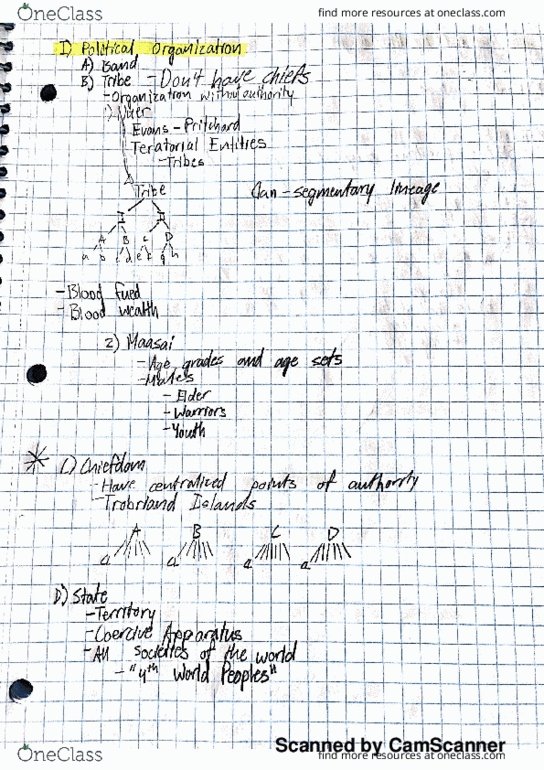 OneClass
find more resources at oneclass.com
I) Political Organization
A) Band
B) Tribe - Don't have chiefs
- Organization without authority
1) Nuer
Evans - Pritchard
Teratorial Entities
- Tribes
Tribe
Clan - segmentary lineage
I II
A B C D
a b c d e f g h
- Blood fued
- Blood wealth
2) Maasai
- Age grades and age sets
- Males
- Elder
- Warriors
- Youth
C) Chiefdom
- Have centralized points of authority
- Trobriand Islands
A B C D
a a a a
D) State
- Territory
- Coercive Apparatus
- All societies of the world
- "4th World Peoples"
Scanned by CamScanner
OneClass
find more resources at oneclass.com